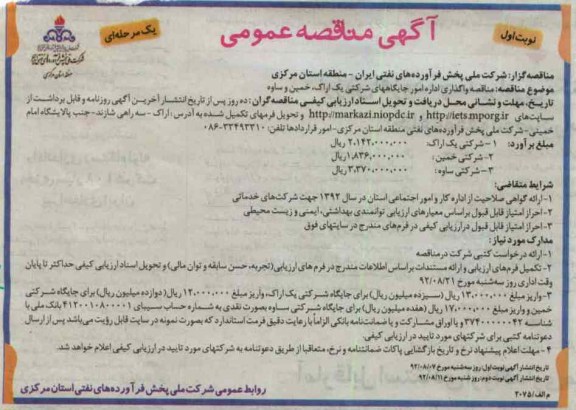 نوبت اول
آگهی مناقصه عمومی
یک مرحله‌ای
شرکت ملی پخش فرآورده‌های نفتی ایران
منطقه استان مرکزی
مناقصه‌گزار: شرکت ملی پخش فرآورده‌های نفتی ایران - منطقه استان مرکزی
موضوع مناقصه: مناقصه واگذاری اداره امور جایگاههای شرکتی یک اراک، خمین و ساوه
تاریخ، مهلت و نشانی محل دریافت و تحویل اسناد ارزیابی کیفی مناقصه‌گران: ده روز پس از تاریخ انتشار آخرین آگهی روزنامه و قابل برداشت از
سایت‌های http://iets.mporg.ir و http://markazi.niopdc.ir و تحویل فرمهای تکمیل شده به آدرس: اراک - سه راهی شازند- جنب پالایشگاه امام
خمینی- شرکت ملی پخش فرآورده‌های نفتی منطقه استان مرکزی- امور قراردادها تلفن: ۳۳۴۹۳۳۱۰-۰۸۶
مبلغ برآورد: ۱- شرکتی یک اراک: ۲,۱۴۲,۰۰۰,۰۰۰ ریال
۲- شرکتی خمین: ۱,۸۳۶,۰۰۰,۰۰۰ ریال
۳- شرکتی ساوه: ۳,۳۷۰,۰۰۰,۰۰۰ ریال
شرایط متقاضی:
۱- ارائه گواهی صلاحیت از اداره کار و امور اجتماعی استان در سال ۱۳۹۲ جهت شرکت‌های خدماتی
۲- احراز امتیاز قابل قبول براساس معیارهای ارزیابی توانمندی بهداشتی، ایمنی و زیست محیطی
۳- احراز امتیاز قابل قبول در ارزیابی کیفی در فرم‌های مندرج در سایتهای فوق
مدارک مورد نیاز:
۱- ارائه درخواست کتبی شرکت در مناقصه
۲- تکمیل فرم‌های ارزیابی و ارائه مستندات براساس اطلاعات مندرج در فرم های ارزیابی (تجربه، حسن سابقه و توان مالی) و تحویل اسناد ارزیابی کیفی حداکثر تا پایان
وقت اداری روز سه‌شنبه مورخ ۹۲/۰۸/۲۱
۳- واریز مبلغ ۱۳,۰۰۰,۰۰۰ ریال (سیزده میلیون ریال) برای جایگاه شرکتی یک اراک، واریز مبلغ ۱۲,۰۰۰,۰۰۰ ریال (دوازده میلیون ریال) برای جایگاه شرکتی
خمین و واریز مبلغ ۱۷,۰۰۰,۰۰۰ ریال (هفده میلیون ریال) برای جایگاه شرکتی ساوه بصورت نقدی به شماره حساب سیبای ۴۱۲۰۰۱۰۸۰۰۰۱ بانک ملی با
شناسه ۳۷۴۰۰۰۰۰۰۴۲ و یا اوراق مشارکت و یا ضمانت‌نامه بانکی الزاماً با رعایت دقیق فرمت استاندارد که بصورت نمونه در سایت قابل رؤیت می‌باشد پس از ارسال
دعوتنامه کتبی برای شرکتهای مورد تایید در ارزیابی کیفی.
۴- مهلت اعلام پیشنهاد نرخ و تاریخ بازگشایی پاکات ضمانتنامه و نرخ، متعاقبا از طریق دعوتنامه به شرکتهای مورد تایید در ارزیابی کیفی اعلام خواهد شد.
تاریخ انتشار آگهی نوبت اول: روز سه شنبه مورخ ۹۲/۰۸/۰۷
تاریخ انتشار آگهی نوبت دوم: روز شنبه مورخ ۹۲/۰۸/۱۱
م الف/۲۰۷۵
روابط عمومی شرکت ملی پخش فرآورده‌های نفتی استان مرکزی